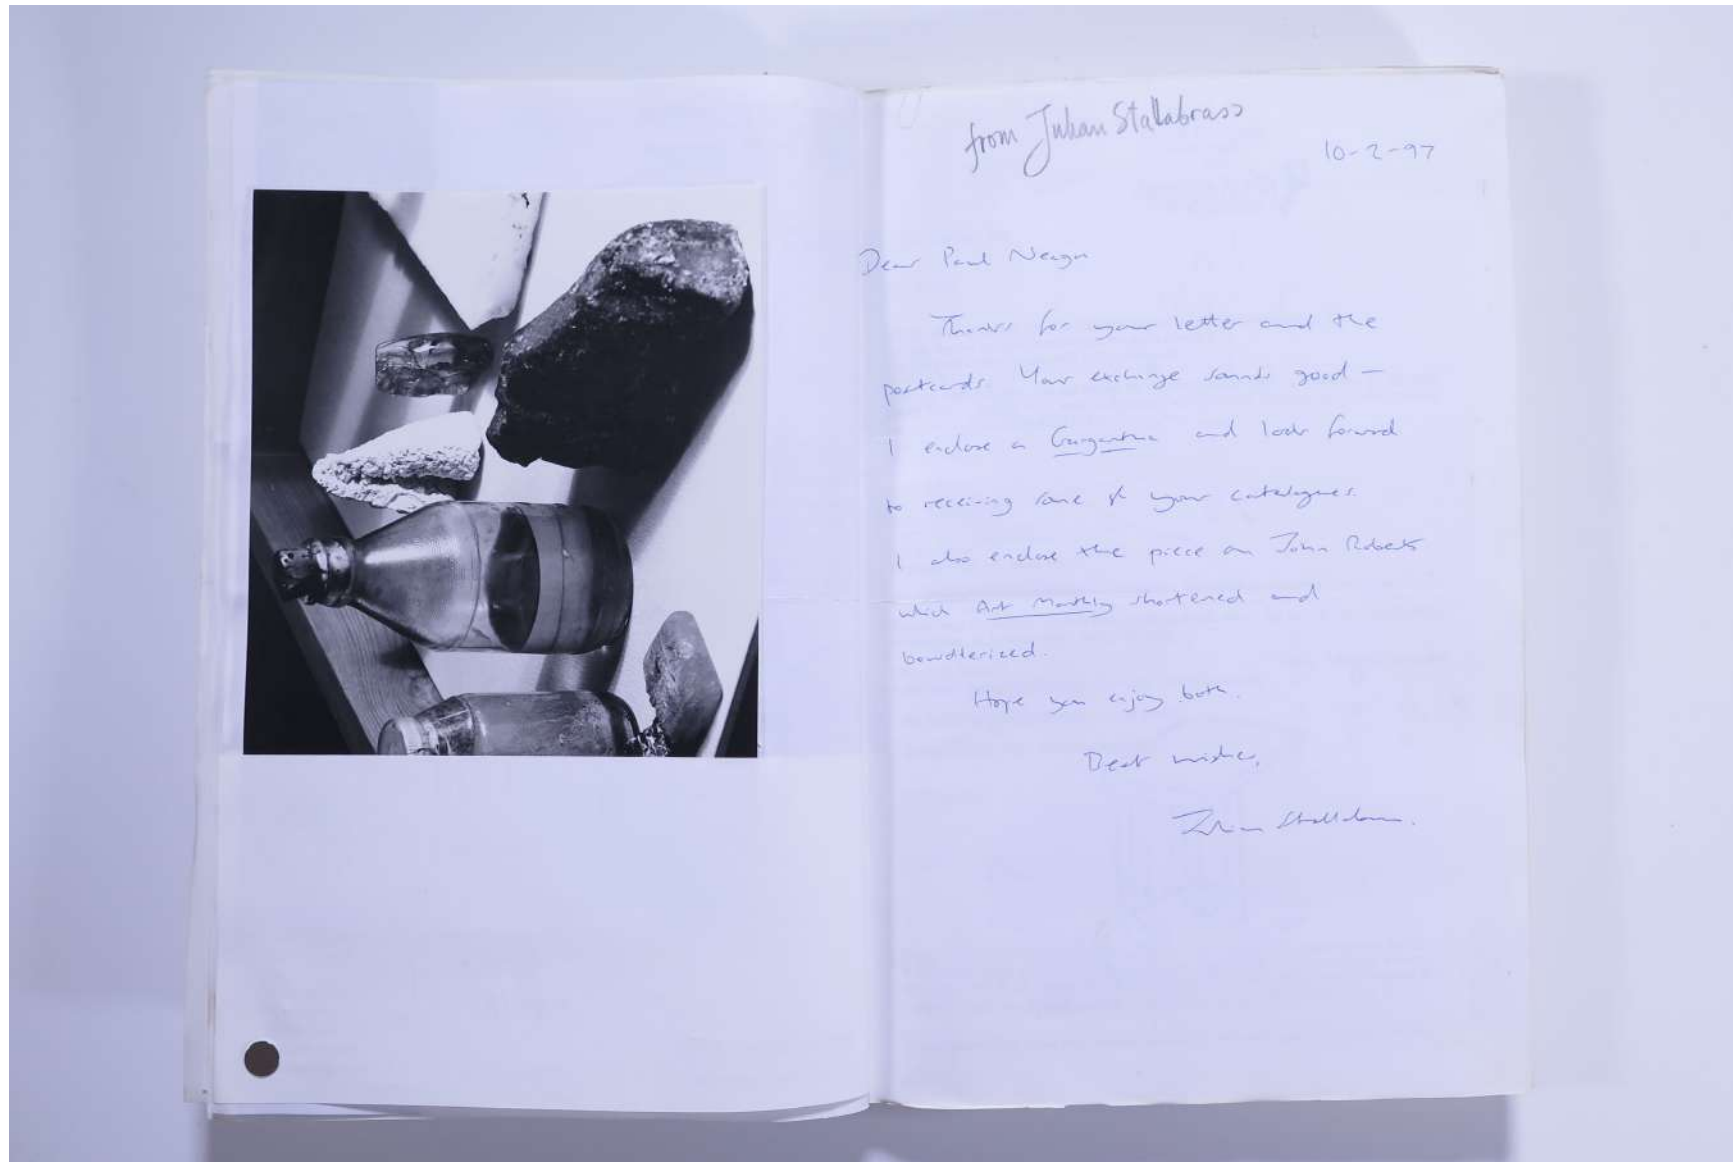 from Julian Stallabrass
10-2-97
Dear Paul Neagu
Thanks for your letter and the
postcards. Your exchange sounds good –
I enclose a Gargantua and look forward
to receiving some of your catalogues.
I also enclose the piece on John Roberts
which Art Monthly shortened and
bowdlerized.
Hope you enjoy both.
Best wishes,
Julian Stallabrass.